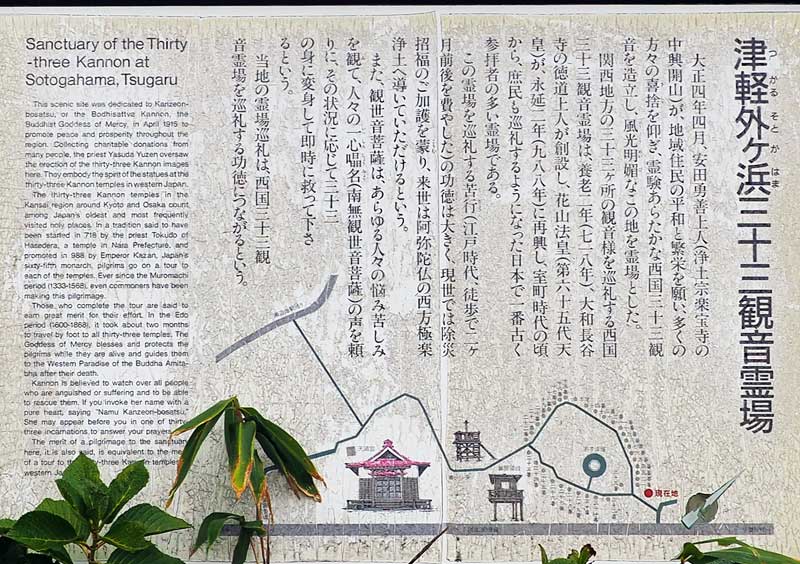 津軽外ヶ浜三十三観音霊場
つがるそとがはま
大正四年四月、安田勇善上人(浄土宗楽宝寺の
中興開山)が、地域住民の平和と繁栄を願い、多くの
方々の喜捨を仰ぎ、霊験あらたかな西国三十三観
音を造立し、風光明媚なこの地を霊場とした。
関西地方の三十三ヶ所の観音様を巡礼する西国
三十三観音霊場は、養老二年(七一八年)、大和長谷
寺の徳道上人が創設し、花山法皇(第六十五代天
皇)が、永延二年(九八八年)に再興し、室町時代の頃
から、庶民も巡礼するようになった日本で一番古く
参拝者の多い霊場である。
この霊場を巡礼する苦行(江戸時代、徒歩で二ヶ
月前後を費やした)の功徳は大きく、現世では除災
招福のご加護を蒙り、来世は阿弥陀仏の西方極楽
浄土へ導いていただけるという。
また、観世音菩薩は、あらゆる人々の悩み苦しみ
を観て、人々の一心唱名(南無観世音菩薩)の声を頼
りに、その状況に応じて三十三
の身に変身して即時に救って下さ
るという。
当地の霊場巡礼は、西国三十三観
音霊場を巡礼する功徳につながるという。
Sanctuary of the Thirty
-three Kannon at
Sotogahama, Tsugaru
This scenic site was dedicated to Kanzeon-
bosatsu, or the Bodhisattva Kannon, the
Buddhist Goddess of Mercy, in April 1915 to
promote peace and prosperity throughout the
region. Collecting charitable donations from
many people, the priest Yasuda Yuzen oversaw
the erection of the thirty-three Kannon images
here. They embody the spirit of the statues at the
thirty-three Kannon temples in western Japan.
The thirty-three Kannon temples in the
Kansai region around Kyoto and Osaka count
among Japan's oldest and most frequently
visited holy places. In a tradition said to have
been started in 718 by the priest Tokudo of
Hasedera, a temple in Nara Prefecture, and
promoted in 988 by Emperor Kazan, Japan's
sixty-fifth monarch, pilgrims go on a tour to
each of the temples. Ever since the Muromachi
period (1333-1568), even commoners have been
making this pilgrimage.
Those who complete the tour are said to
earn great merit for their effort. In the Edo
period (1600-1868), it took about two months
to travel by foot to all thirty-three temples. The
Goddess of Mercy blesses and protects the
pilgrims while they are alive and guides them
to the Western Paradise of the Buddha Amita-
bha after their death.
Kannon is believed to watch over all people
who are anguished or suffering and to be able
to rescue them. If you invoke her name with a
pure heart, saying "Namu Kanzeon-bosatsu,"
She may appear before you in one of thirty-
three incarnations to answer your prayers.
The merit of a pilgrimage to the sanctuary
here, it is also said, is equivalent to the
of a tour to the thirty-three Kannon temples
western
現在地